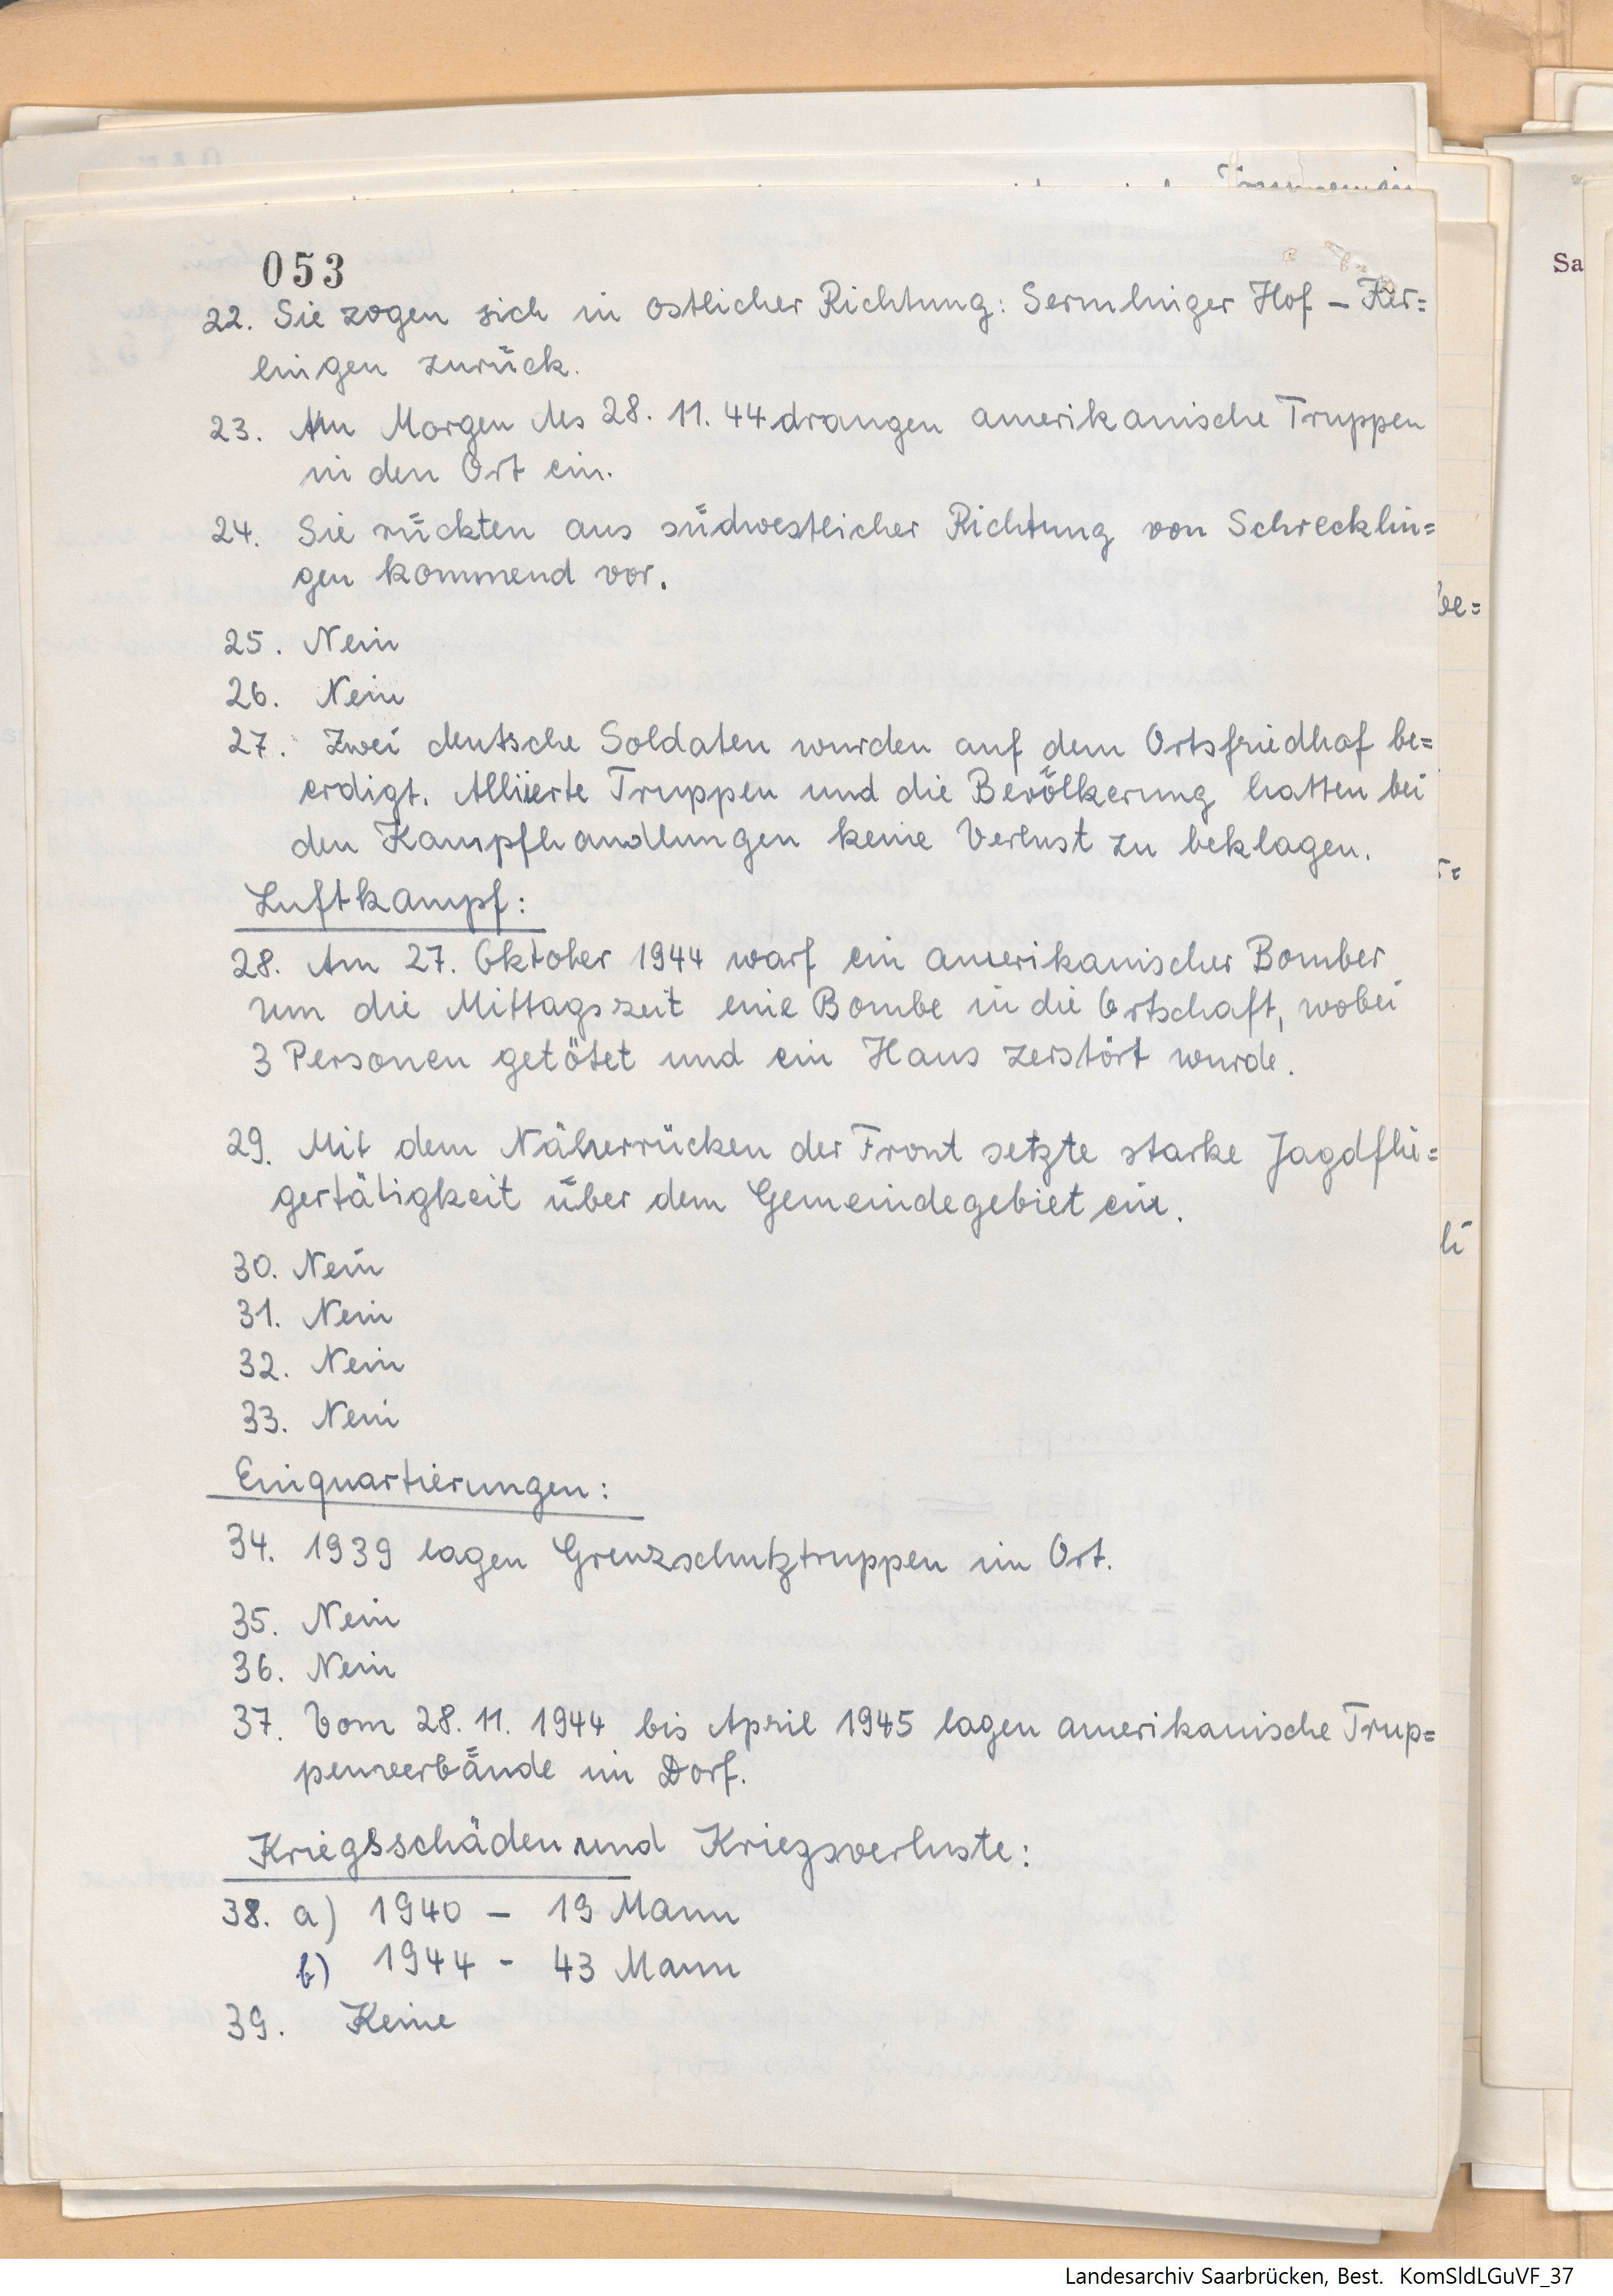 053
22. Sie zogen sich in östlicher Richtung: Sermlinger Hof – Ker=
lingen zurück.
23. Am Morgen des 28. 11. 44 drangen amerikanische Truppen
in den Ort ein.
24. Sie rückten aus südwestlicher Richtung von Schrecklin=
gen kommend vor.
25. Nein
26. Nein
27. Zwei deutsche Soldaten wurden auf dem Ortsfriedhof be=
erdigt. Alliierte Truppen und die Bevölkerung hatten bei
den Kampfhandlungen keine Verlust zu beklagen.
Luftkampf:
28. Am 27. Oktober 1944 warf ein amerikanischer Bomber
um die Mittagszeit eine Bombe in die Ortschaft, wobei
3 Personen getötet und ein Haus zerstört wurde.
29. Mit dem Näherrücken der Front setzte starke Jagdflie=
gertätigkeit über dem Gemeindegebiet ein.
30. Nein
31. Nein
32. Nein
33. Nein
Einquartierungen:
34. 1939 lagen Grenzschutztruppen im Ort.
35. Nein
36. Nein
37. Vom 28. 11. 1944 bis April 1945 lagen amerikanische Trup=
penverbände im Dorf.
Kriegsschäden und Kriegsverluste:
38. a) 1940 – 19 Mann
b) 1944 - 43 Mann
39. Keine
Sa
be=
Landesarchiv Saarbrücken, Best. KomSldLGuVF_37